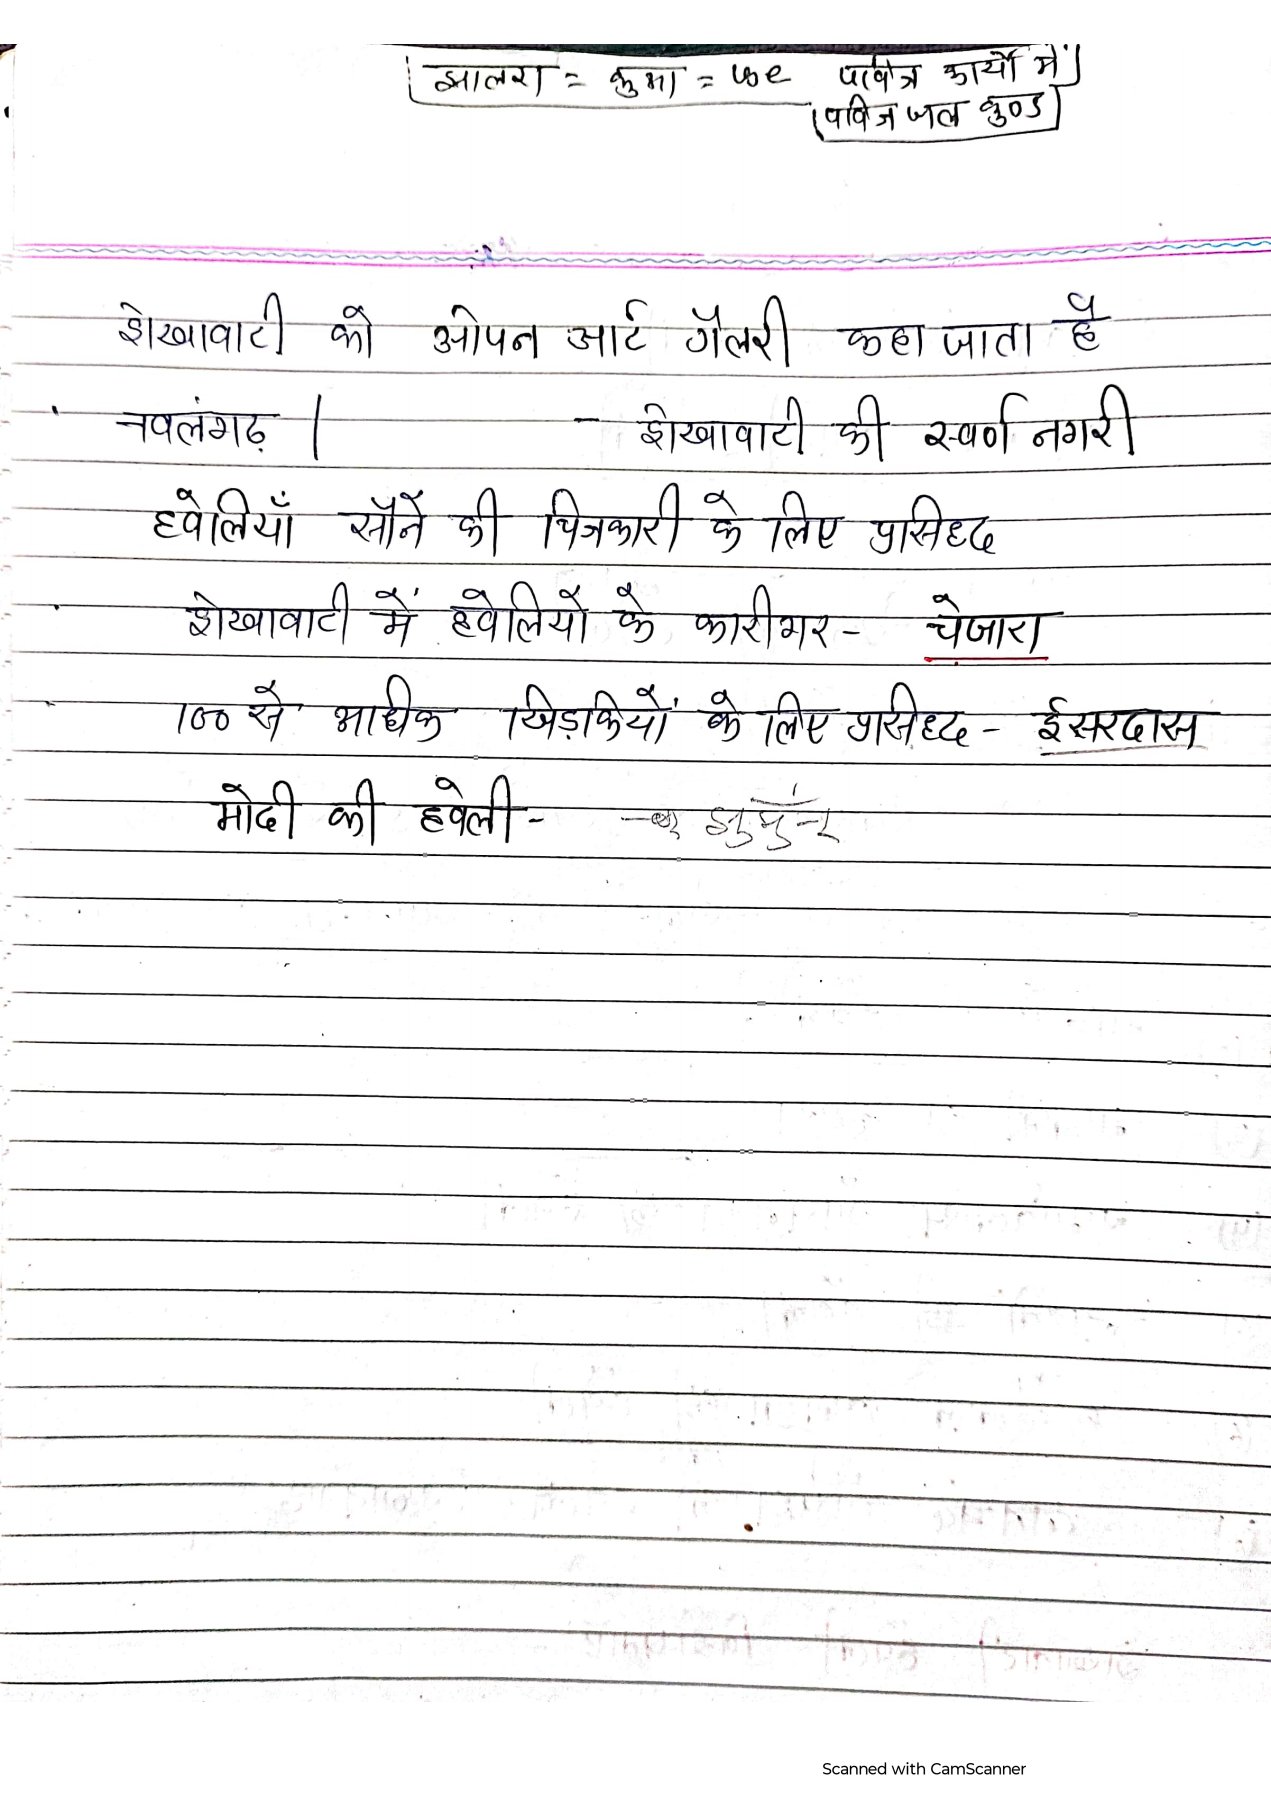 झालरा = कुआ = use पवित्र कार्यो में
(पवित्र जल कुण्ड)
शेखावाटी को ओपन आर्ट गैलरी कहा जाता है
नवलगढ़ | - शेखावाटी की स्वर्ण नगरी
हवेलियाँ सोने की चित्रकारी के लिए प्रसिध्द
शेखावाटी में हवेलियो के कारीगर - चेजारा
100 से अधिक खिड़कियों के लिए प्रसिध्द - ईसरदास
मोदी की हवेली -
Scanned with CamScanner